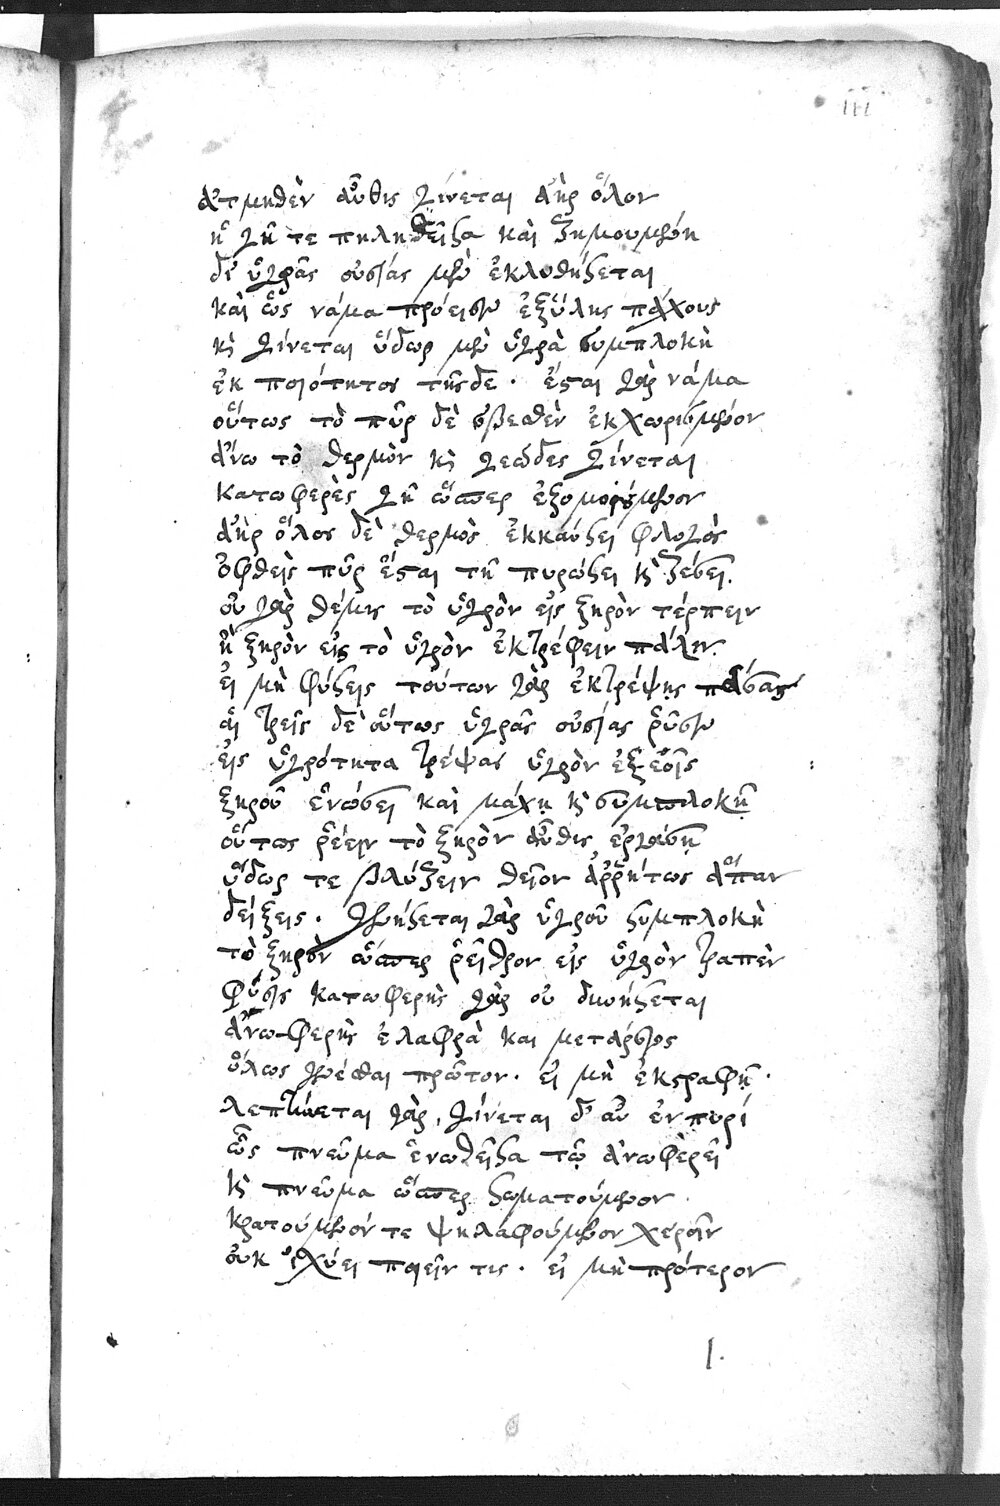 ἀτμηθὲν αὖθις γίνεται ἀὴρ ὅλον
ἢ γῆ τε πηληθεῖσα καὶ ζημουμένη
δι' ὑγρᾶς οὐσίας μὲν ἐκλυθήσεται
καὶ ὡς νάμα πρόεισιν ἐξ ὕλης πάχους
κὶ γίνεται ὕδωρ μὲν ὑγρὰ συμπλοκὴ
ἐκ ποιότητος τῆς δε · ἔσται γὰρ νάμα
οὕτως τὸ πῦρ δὲ σβεσθὲν ἐκχωρισμένον
ἄνω τὸ θερμὸν κὶ γεῶδες γίνεται
κατωφερὲς γῆ ὥσπερ ἐξομορούμενον
ἀὴρ ὅλος δὲ θερμὸς ἐκκαύσει φλογὸς
ὀφθεὶς πῦρ ἔσται τῇ πυρώσει κὶ ζέσει.
οὐ γὰρ θέμις τὸ ὑγρὸν εἰς ξηρὸν τέρπειν
ἢ ξηρὸν εἰς τὸ ὑγρὸν ἐκτρέφειν πάλιν.
εἰ μὴ φύσεις τούτων γὰρ ἐκτρέψῃς πάσας
αἱ τρεῖς δὲ οὕτως ὑγρᾶς οὐσίας ῥύσιν
εἰς ὑγρότητα τρέψας ὑγρὸν ἐξ εοῖς
ξηροῦ ἑνώσει καὶ μάχῃ κὶ συμπλοκῇ
οὕτως ῥέειν τὸ ξηρὸν αὖθις ἐργάσῃ
ὕδωρ τε βλύζειν θεῖον ἀρρήτως ἅπαν
δείξεις · γενήσεται γὰρ ὑγροῦ συμπλοκὴ
τὸ ξηρὸν ὥσπερ ῥεῖθρον εἰς ὑγρὸν τραπὲν
φύσις κατωφερὴς γὰρ οὐ δυνήσεται
ἀνωφερὴς ἐλαφρὰ και μετάρσιος
ὅλως γενέσθαι πρῶτον · εἰ μὴ ἐκστραφῇ ·
λεπτύνεται γὰρ, γίνεται δ' αὖ ἐν πυρί
ὡς πνεῦμα ἑνωθεῖσα τῷ ἀνωφερεῖ
κὶ πνεῦμα ὥσπερ σωματούμενον ·
κρατούμενόν τε ψηλαφούμενον χερσῖν
οὐκ ἰσχύει ποιεῖν τις · εἰ μὴ πρότερον